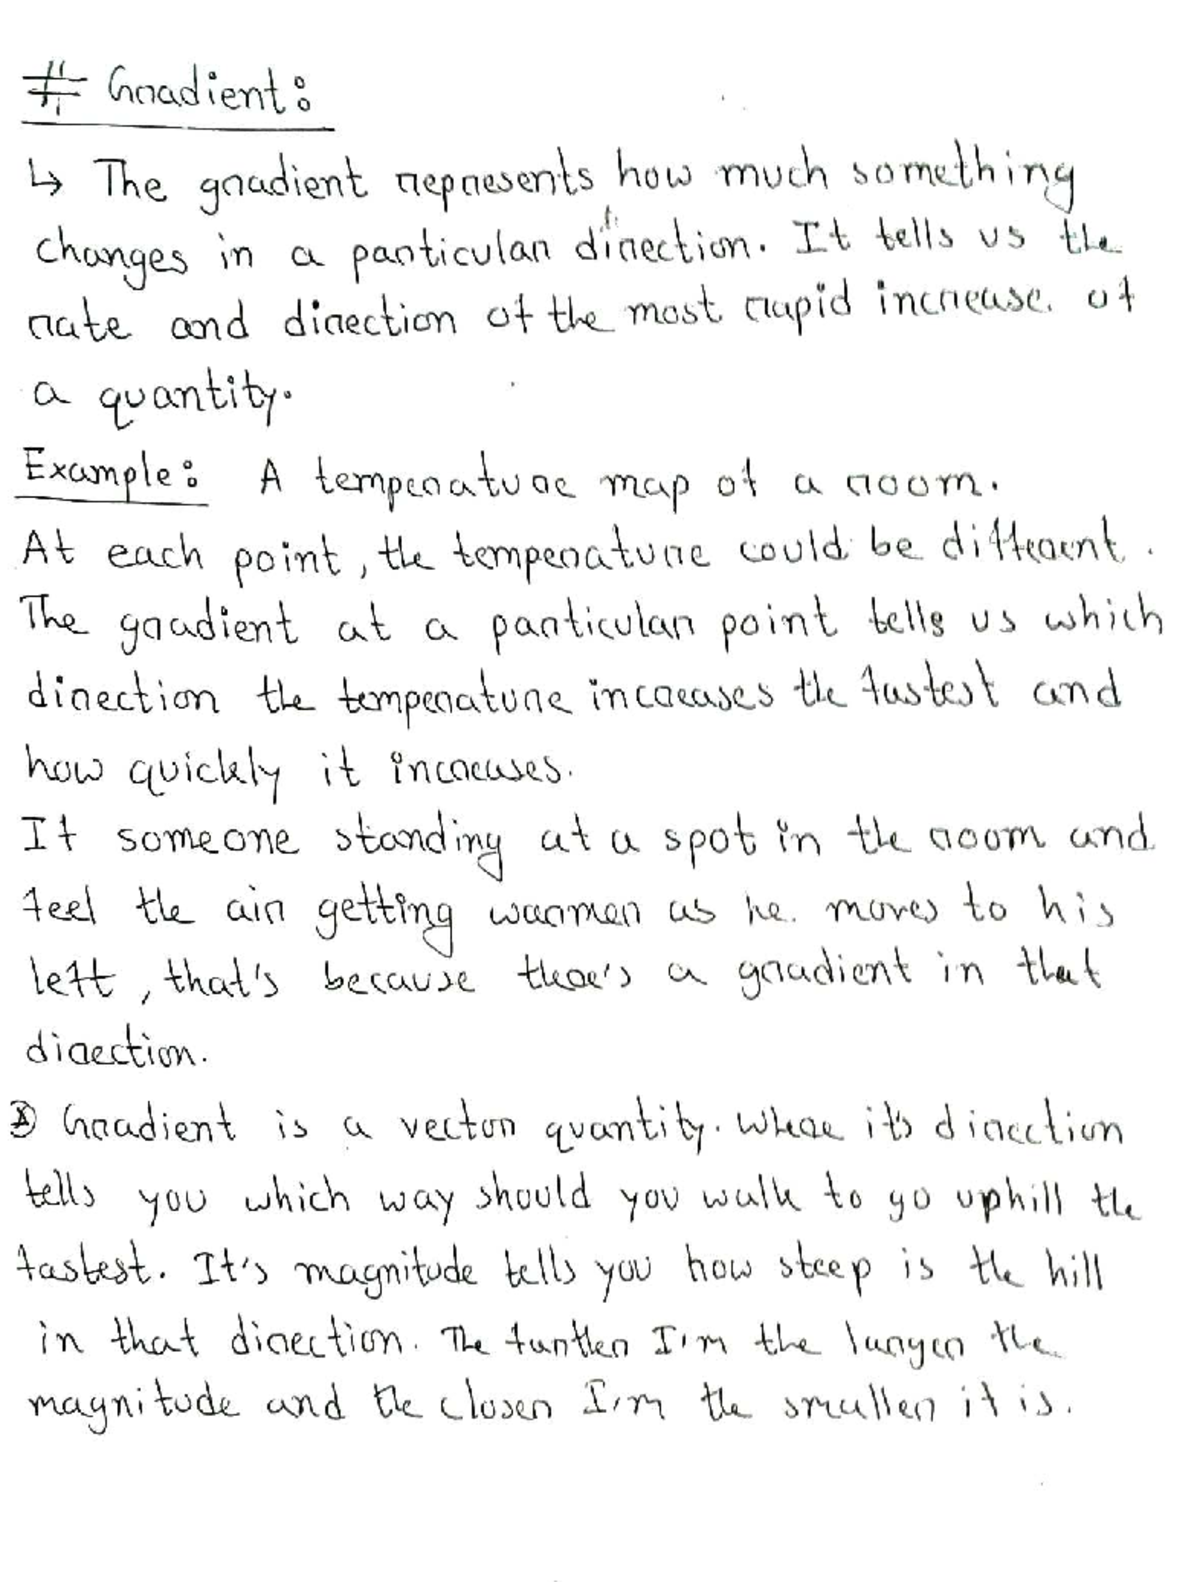 # Gradient:
↳ The gradient represents how much something
changes in a particular direction. It tells us the
rate and direction of the most rapid increase of
a quantity.
Example: A temperature map of a room.
At each point, the temperature could be different.
The gradient at a particular point tells us which
direction the temperature increases the fastest and
how quickly it increases.
If someone standing at a spot in the room and
feel the air getting warmer as he moves to his
left, that's because there's a gradient in that
direction.
Gradient is a vector quantity. Where it's direction
tells you which way should you walk to go uphill the
fastest. It's magnitude tells you how steep is the hill
in that direction. The further I'm the larger the
magnitude and the closer I'm the smaller it is.